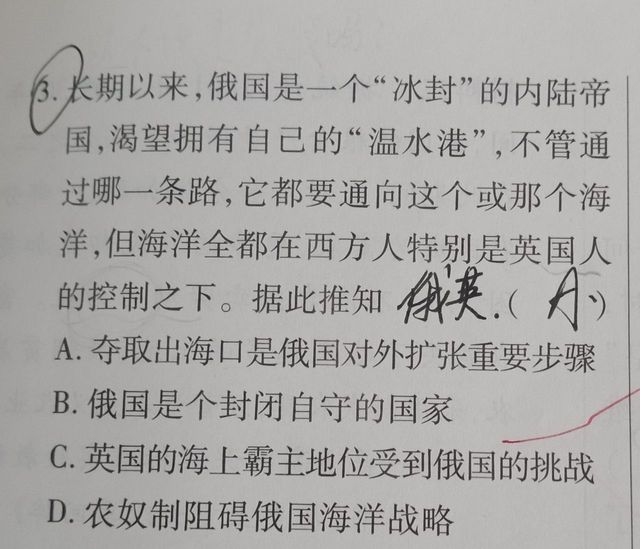 3. 长期以来,俄国是一个“冰封”的内陆帝
国,渴望拥有自己的“温水港”,不管通
过哪一条路,它都要通向这个或那个海
洋,但海洋全都在西方人特别是英国人
的控制之下。据此推知 俄英.( A )
A. 夺取出海口是俄国对外扩张重要步骤
B. 俄国是个封闭自守的国家
C. 英国的海上霸主地位受到俄国的挑战
D. 农奴制阻碍俄国海洋战略